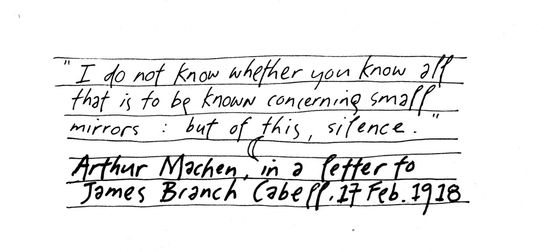 "I do not know whether you know all
that is to be known concerning small
mirrors : but of this, silence."
Arthur Machen, in a letter to
James Branch Cabell. 17 Feb. 1918